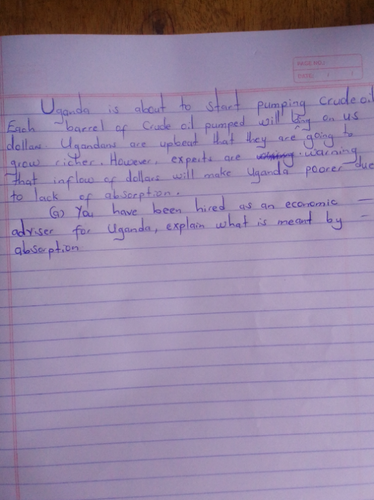 PAGE NO.:
DATE: / /
Uganda is about to start pumping Crude oil
Each barrel of Crude oil pumped will on us
dollars. Ugandans are upbeat that they are going to
grow richer. However, experts are warning
that inflow of dollars will make Uganda poorer due
to lack of absorption.
(a) You have been hired as an economic
adviser for Uganda, explain what is meant by
absorption